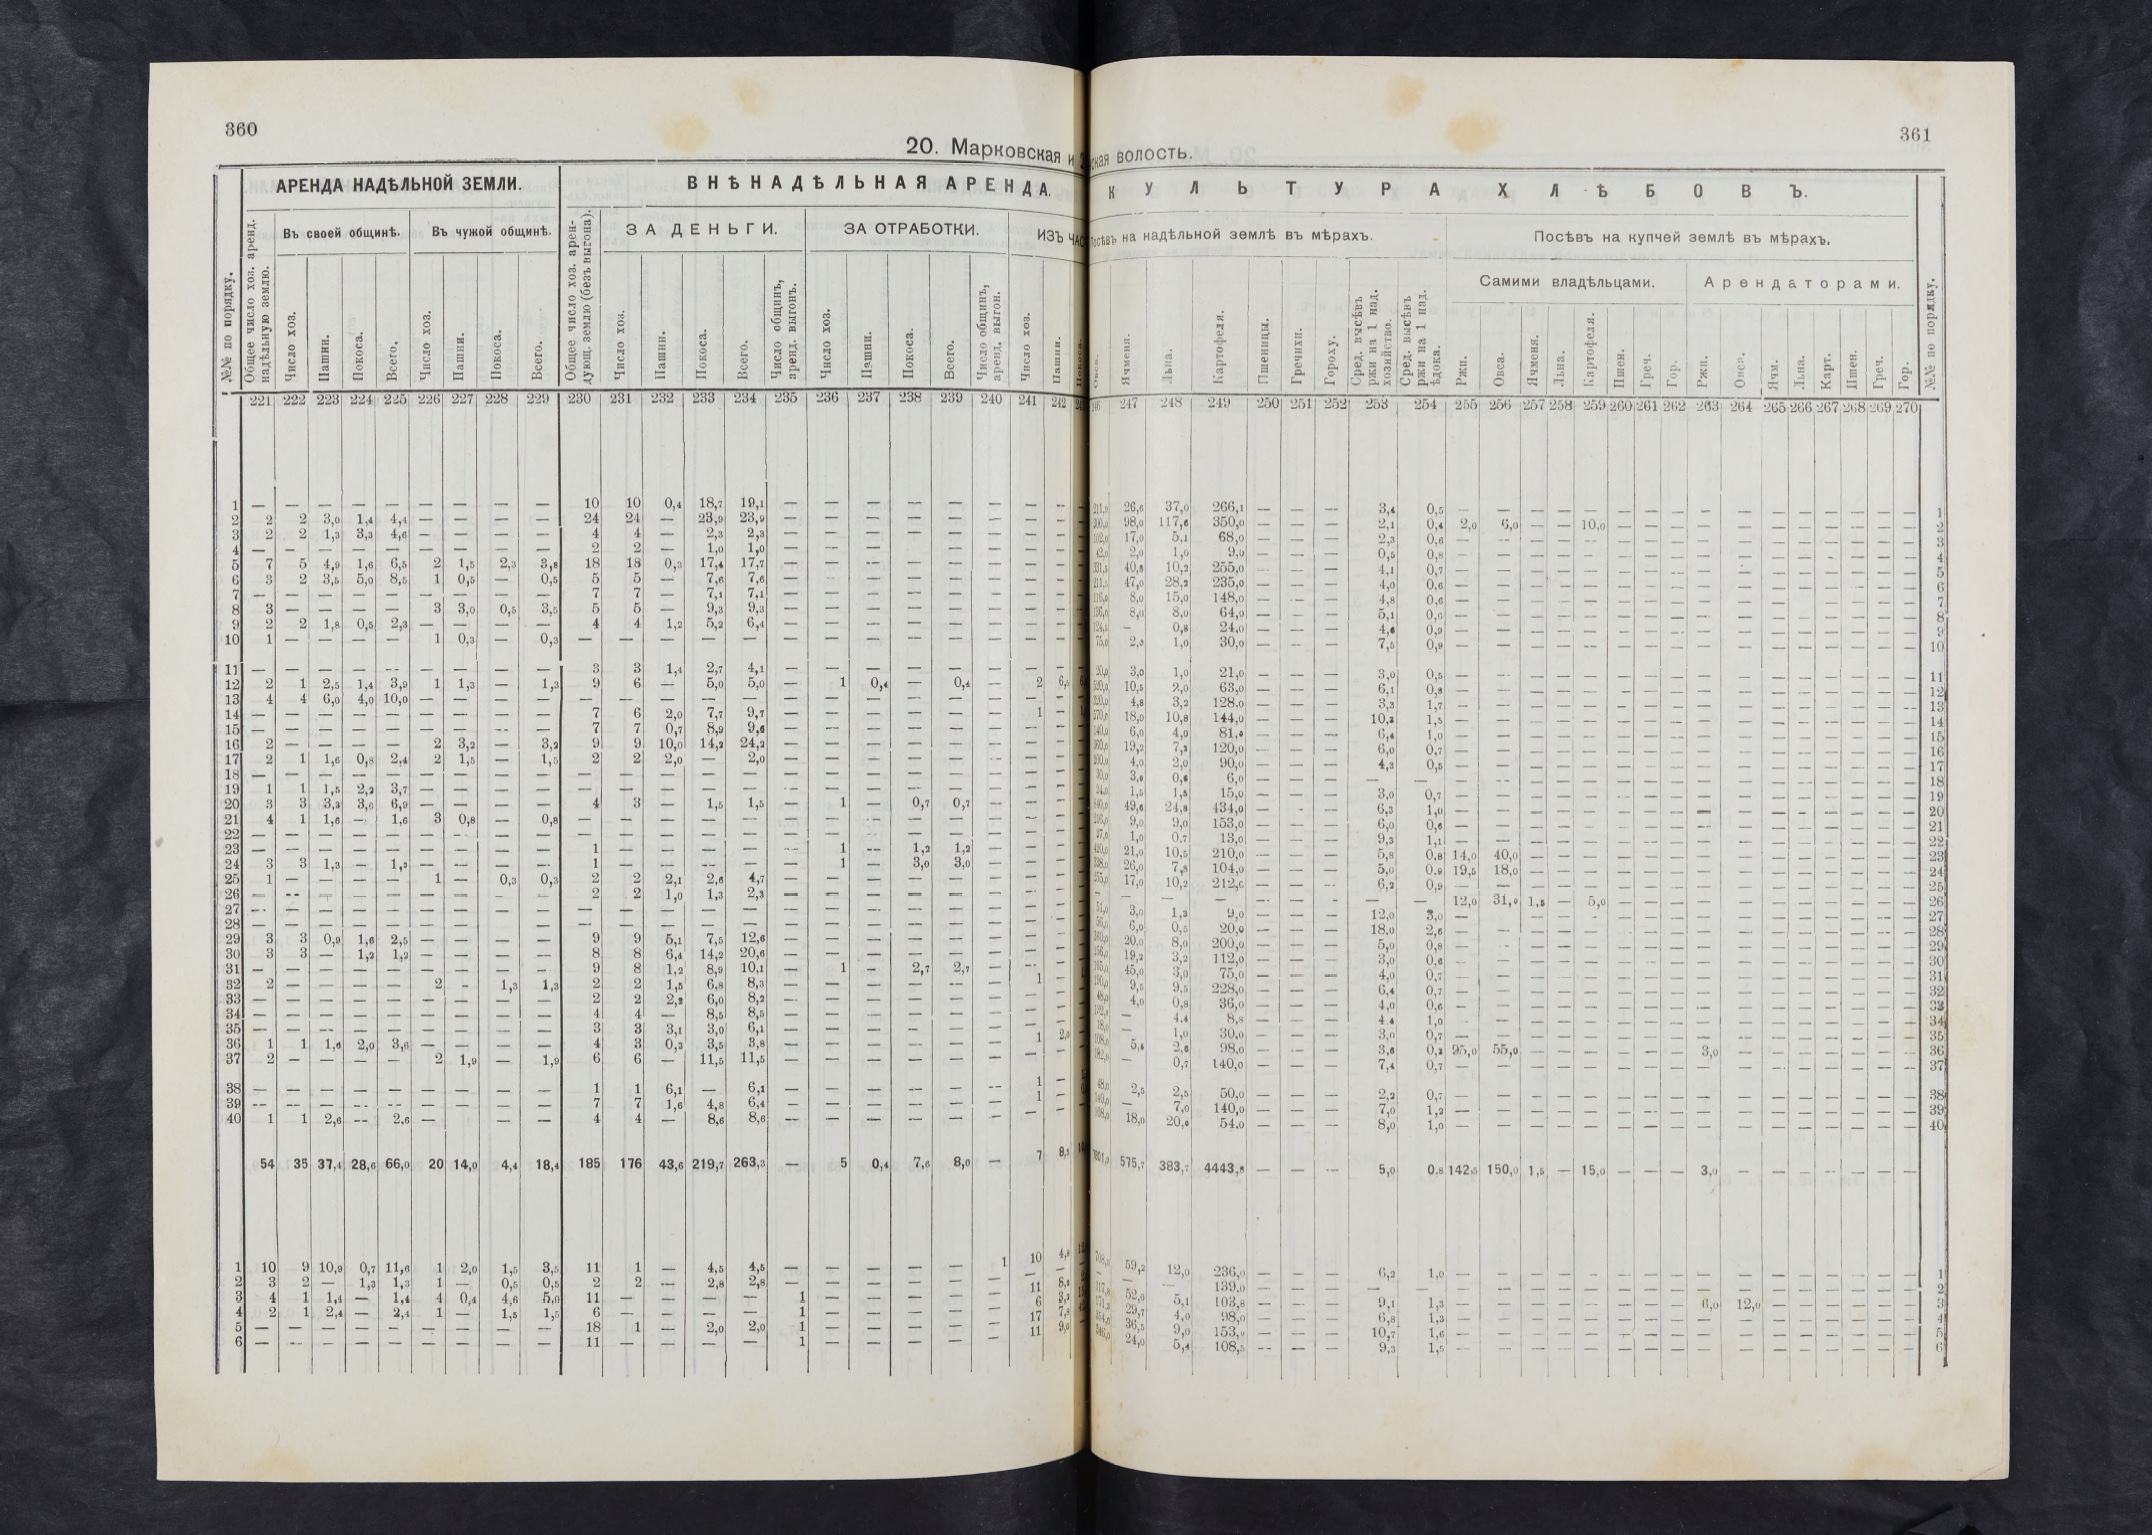 360
361
20. Марковская и
ская волость.
АРЕНДА НАДѢЛЬНОЙ ЗЕМЛИ.
ВНѢНАДѢЛЬНАЯ АРЕНДА.
КУЛЬТУРА ХЛѢБОВЪ.
Въ своей общинѣ. Въ чужой общинѣ.
ЗА ДЕНЬГИ. ЗА ОТРАБОТКИ. ИЗЪ ЧАС
Посѣвъ на надѣльной землѣ въ мѣрахъ. Посѣвъ на купчей землѣ въ мѣрахъ.
Самими владѣльцами. Арендаторами.
№№ по порядку.
Общее число хоз. аренд. надѣльную землю.
Число хоз. Пашни. Покоса. Всего. Число хоз. Пашни. Покоса. Всего.
Общее число хоз. арендующ. землю (безъ выгона).
Число хоз. Пашни. Покоса. Всего. Число общинъ, аренд. выгонъ.
Число хоз. Пашни. Покоса. Всего. Число общинъ, аренд. выгон. Число хоз. Пашни. Покоса.
Овса. Ячменя. Льна. Картофеля. Пшеницы. Гречихи. Гороху.
Сред. высѣвъ ржи на 1 над. хозяйство. Сред. высѣвъ ржи на 1 над. ѣдока.
Ржи. Овса. Ячменя. Льна. Картофеля. Пшен. Греч. Гор. Ржи. Овса. Ячм. Льна. Карт. Пшен. Греч. Гор.
№№ по порядку.
221 222 223 224 225 226 227 228 229 230 231 232 233 234 235 236 237 238 239 240 241 242
247 248 249 250 251 252 253 254 255 256 257 258 259 260 261 262 263 264 265 266 267 268 269 270
1 — — — — — — — — — 10 10 0,4 18,7 19,1 — — — — — — — —
2 2 2 3,0 1,4 4,4 — — — — 24 24 — 23,9 23,9 — — — — — — — —
3 2 2 1,3 3,3 4,6 — — — — 4 4 — 2,3 2,3 — — — — — — — —
4 — — — — — — — — — 2 2 — 1,0 1,0 — — — — — — — —
5 7 5 4,9 1,6 6,5 2 1,5 2,3 3,8 18 18 0,3 17,4 17,7 — — — — — — — —
6 3 2 3,5 5,0 8,5 1 0,5 — 0,5 5 5 — 7,6 7,6 — — — — — — — —
7 — — — — — — — — — 7 7 — 7,1 7,1 — — — — — — — —
8 3 — — — — 3 3,0 0,5 3,5 5 5 — 9,3 9,3 — — — — — — — —
9 2 2 1,8 0,5 2,3 — — — — 4 4 1,2 5,2 6,4 — — — — — — — —
10 1 — — — — 1 0,3 — 0,3 — — — — — — — — — — — — —
11 — — — — — — — — — 3 3 1,4 2,7 4,1 — — — — — — — —
12 2 1 2,5 1,4 3,9 1 1,3 — 1,3 9 6 — 5,0 5,0 — 1 0,4 — 0,4 — 2 6,5
13 4 4 6,0 4,0 10,0 — — — — — — — — — — — — — — — — —
14 — — — — — — — — — 7 6 2,0 7,7 9,7 — — — — — — 1 —
15 — — — — — — — — — 7 7 0,7 8,9 9,6 — — — — — — — —
16 2 — — — — 2 3,2 — 3,2 9 9 10,0 14,2 24,2 — — — — — — — —
17 2 1 1,6 0,8 2,4 2 1,5 — 1,5 2 2 2,0 — 2,0 — — — — — — — —
18 — — — — — — — — — — — — — — — — — — — — — —
19 1 1 1,5 2,2 3,7 — — — — — — — — — — — — — — — — —
20 3 3 3,3 3,6 6,9 — — — — 4 3 — 1,5 1,5 — 1 — 0,7 0,7 — — —
21 4 1 1,6 — 1,6 3 0,8 — 0,8 — — — — — — — — — — — — —
22 — — — — — — — — — — — — — — — — — — — — — —
23 — — — — — — — — — 1 — — — — — 1 — 1,2 1,2 — — —
24 3 3 1,3 — 1,3 — — — — 1 — — — — — 1 — 3,0 3,0 — — —
25 1 — — — — 1 — 0,3 0,3 2 2 2,1 2,6 4,7 — — — — — — — —
26 — — — — — — — — — 2 2 1,0 1,3 2,3 — — — — — — — —
27 — — — — — — — — — — — — — — — — — — — — — —
28 — — — — — — — — — — — — — — — — — — — — — —
29 3 3 0,9 1,6 2,5 — — — — 9 9 5,1 7,5 12,6 — — — — — — — —
30 3 3 — 1,2 1,2 — — — — 8 8 6,4 14,2 20,6 — — — — — — — —
31 — — — — — — — — — 9 8 1,2 8,9 10,1 — 1 — 2,7 2,7 — — —
32 2 — — — — 2 — 1,3 1,3 2 2 1,5 6,8 8,3 — — — — — — 1 —
33 — — — — — — — — — 2 2 2,2 6,0 8,2 — — — — — — — —
34 — — — — — — — — — 4 4 — 8,5 8,5 — — — — — — — —
35 — — — — — — — — — 3 3 3,1 3,0 6,1 — — — — — — — —
36 1 1 1,6 2,0 3,6 — — — — 4 3 0,3 3,5 3,8 — — — — — — 1 2,0
37 2 — — — — 2 1,9 — 1,9 6 6 — 11,5 11,5 — — — — — — — —
38 — — — — — — — — — 1 1 6,1 — 6,1 — — — — — — 1 —
39 — — — — — — — — — 7 7 1,6 4,8 6,4 — — — — — — 1 —
40 1 1 2,6 — 2,6 — — — — 4 4 — 8,6 8,6 — — — — — — — —
54 35 37,4 28,6 66,0 20 14,0 4,4 18,4 185 176 43,6 219,7 263,3 — 5 0,4 7,6 8,0 — 7 8,5
1 10 9 10,9 0,7 11,6 1 2,0 1,5 3,5 11 1 — 4,5 4,5 — — — — — 1 10 4,8
2 3 2 — 1,3 1,3 1 — 0,5 0,5 2 2 — 2,8 2,8 — — — — — — — —
3 4 1 1,4 — 1,4 4 0,4 4,6 5,0 11 — — — — 1 — — — — — 11 8,2
4 2 1 2,4 — 2,4 1 — 1,5 1,5 6 — — — — 1 — — — — — 6 3,2
5 — — — — — — — — — 18 1 — 2,0 2,0 1 — — — — — 17 7,8
6 — — — — — — — — — 11 — — — — 1 — — — — — 11 9,0
26,6 37,0 266,1 — — — 3,4 0,5 — — — — — — — — — — — — — — — — 1
98,0 117,6 350,0 — — — 2,1 0,4 2,0 6,0 — — 10,0 — — — — — — — — — — — 2
17,0 5,1 68,0 — — — 2,3 0,6 — — — — — — — — — — — — — — — — 3
2,0 1,0 9,0 — — — 0,5 0,8 — — — — — — — — — — — — — — — — 4
40,8 10,2 255,0 — — — 4,1 0,7 — — — — — — — — — — — — — — — — 5
47,0 28,2 235,0 — — — 4,0 0,6 — — — — — — — — — — — — — — — — 6
8,0 15,0 148,0 — — — 4,8 0,6 — — — — — — — — — — — — — — — — 7
8,0 8,0 64,0 — — — 5,1 0,6 — — — — — — — — — — — — — — — — 8
— 0,8 24,0 — — — 4,6 0,9 — — — — — — — — — — — — — — — — 9
2,0 1,0 30,0 — — — 7,5 0,9 — — — — — — — — — — — — — — — — 10
3,0 1,0 21,0 — — — 3,0 0,5 — — — — — — — — — — — — — — — — 11
10,5 2,0 63,0 — — — 6,1 0,8 — — — — — — — — — — — — — — — — 12
4,8 3,2 128,0 — — — 3,3 1,7 — — — — — — — — — — — — — — — — 13
18,0 10,8 144,0 — — — 10,2 1,5 — — — — — — — — — — — — — — — — 14
6,0 4,0 81,0 — — — 6,4 1,0 — — — — — — — — — — — — — — — — 15
19,2 7,2 120,0 — — — 6,0 0,7 — — — — — — — — — — — — — — — — 16
4,0 2,0 90,0 — — — 4,3 0,5 — — — — — — — — — — — — — — — — 17
3,0 0,6 6,0 — — — — — — — — — — — — — — — — — — — — — 18
1,5 1,5 15,0 — — — 3,0 0,7 — — — — — — — — — — — — — — — — 19
49,6 24,8 434,0 — — — 6,3 1,0 — — — — — — — — — — — — — — — — 20
9,0 9,0 153,0 — — — 6,0 0,6 — — — — — — — — — — — — — — — — 21
1,0 0,7 13,0 — — — 9,3 1,1 — — — — — — — — — — — — — — — — 22
21,0 10,5 210,0 — — — 5,8 0,8 14,0 40,0 — — — — — — — — — — — — — — 23
26,0 7,8 104,0 — — — 5,0 0,9 19,5 18,0 — — — — — — — — — — — — — — 24
17,0 10,2 212,0 — — — 6,2 0,9 — — — — — — — — — — — — — — — — 25
— — — — — — — — 12,0 31,0 1,5 — 5,0 — — — — — — — — — — — 26
3,0 1,3 9,0 — — — 12,0 3,0 — — — — — — — — — — — — — — — — 27
6,0 0,5 20,0 — — — 18,0 2,6 — — — — — — — — — — — — — — — — 28
20,0 8,0 200,0 — — — 5,0 0,8 — — — — — — — — — — — — — — — — 29
19,2 3,2 112,0 — — — 3,0 0,6 — — — — — — — — — — — — — — — — 30
45,0 3,0 75,0 — — — 4,0 0,7 — — — — — — — — — — — — — — — — 31
9,5 9,5 228,0 — — — 6,4 0,7 — — — — — — — — — — — — — — — — 32
4,0 0,8 36,0 — — — 4,0 0,6 — — — — — — — — — — — — — — — — 33
— 4,4 8,8 — — — 4,4 1,0 — — — — — — — — — — — — — — — — 34
— 1,0 30,0 — — — 3,0 0,7 — — — — — — — — — — — — — — — — 35
5,4 2,6 98,0 — — — 3,6 0,2 95,0 55,0 — — — — — — 3,0 — — — — — — — 36
— 0,7 140,0 — — — 7,4 0,7 — — — — — — — — — — — — — — — — 37
2,5 2,5 50,0 — — — 2,2 0,7 — — — — — — — — — — — — — — — — 38
— 7,0 140,0 — — — 7,0 1,2 — — — — — — — — — — — — — — — — 39
18,0 20,0 54,0 — — — 8,0 1,0 — — — — — — — — — — — — — — — — 40
575,7 383,7 4443,8 — — — 5,0 0,8 142,5 150,0 1,5 — 15,0 — — — 3,0 — — — — — — —
59,2 12,0 236,0 — — — 6,2 1,0 — — — — — — — — — — — — — — — — 1
— — 139,0 — — — — — — — — — — — — — — — — — — — — — 2
52,0 5,1 103,8 — — — 9,1 1,3 — — — — — — — — 6,0 12,0 — — — — — — 3
29,7 4,0 98,0 — — — 6,8 1,3 — — — — — — — — — — — — — — — — 4
36,5 9,0 153,0 — — — 10,7 1,6 — — — — — — — — — — — — — — — — 5
24,0 5,4 108,5 — — — 9,3 1,5 — — — — — — — — — — — — — — — — 6